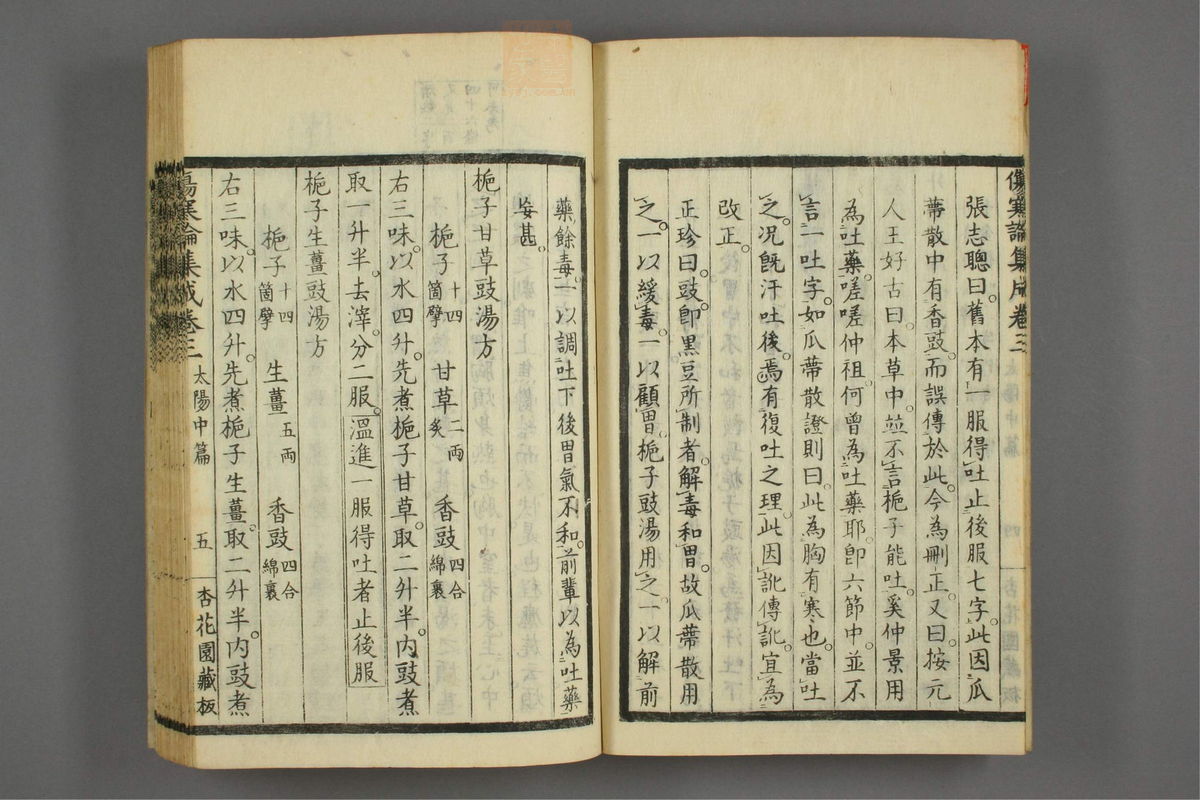 傷寒論集成卷三
張志聰曰舊本有一服得吐止後服七字此因瓜
蔕散中有香豉而誤傳於此今為刪正又曰按元
人王好古曰本草中並不言梔子能吐奚仲景用
為吐藥嗟嗟仲祖何曾為吐藥耶卽六節中並不
言一吐字如瓜蔕散證則曰此為胸有寒也當吐
之況旣汗吐後焉有復吐之理此因訛傳訛宜為
改正
正珍曰豉卽黑豆所制者解毒和胃故瓜蔕散用
之一以緩毒一以顧胃梔子豉湯用之一以解前
藥餘毒一以調吐下後胃氣不和前輩以為吐藥
妄甚
梔子甘草豉湯方
梔子十四箇擘 甘草二兩炙 香豉四合綿裹
右三味以水四升先煮梔子甘草取二升半內豉煮
取一升半去滓分二服溫進一服得吐者止後服
梔子生薑豉湯方
梔子十四箇擘 生薑五兩 香豉四合綿裹
右三味以水四升先煮梔子生薑取二升半內豉煮
傷寒論集成卷三 太陽中篇 五 杏花園藏板